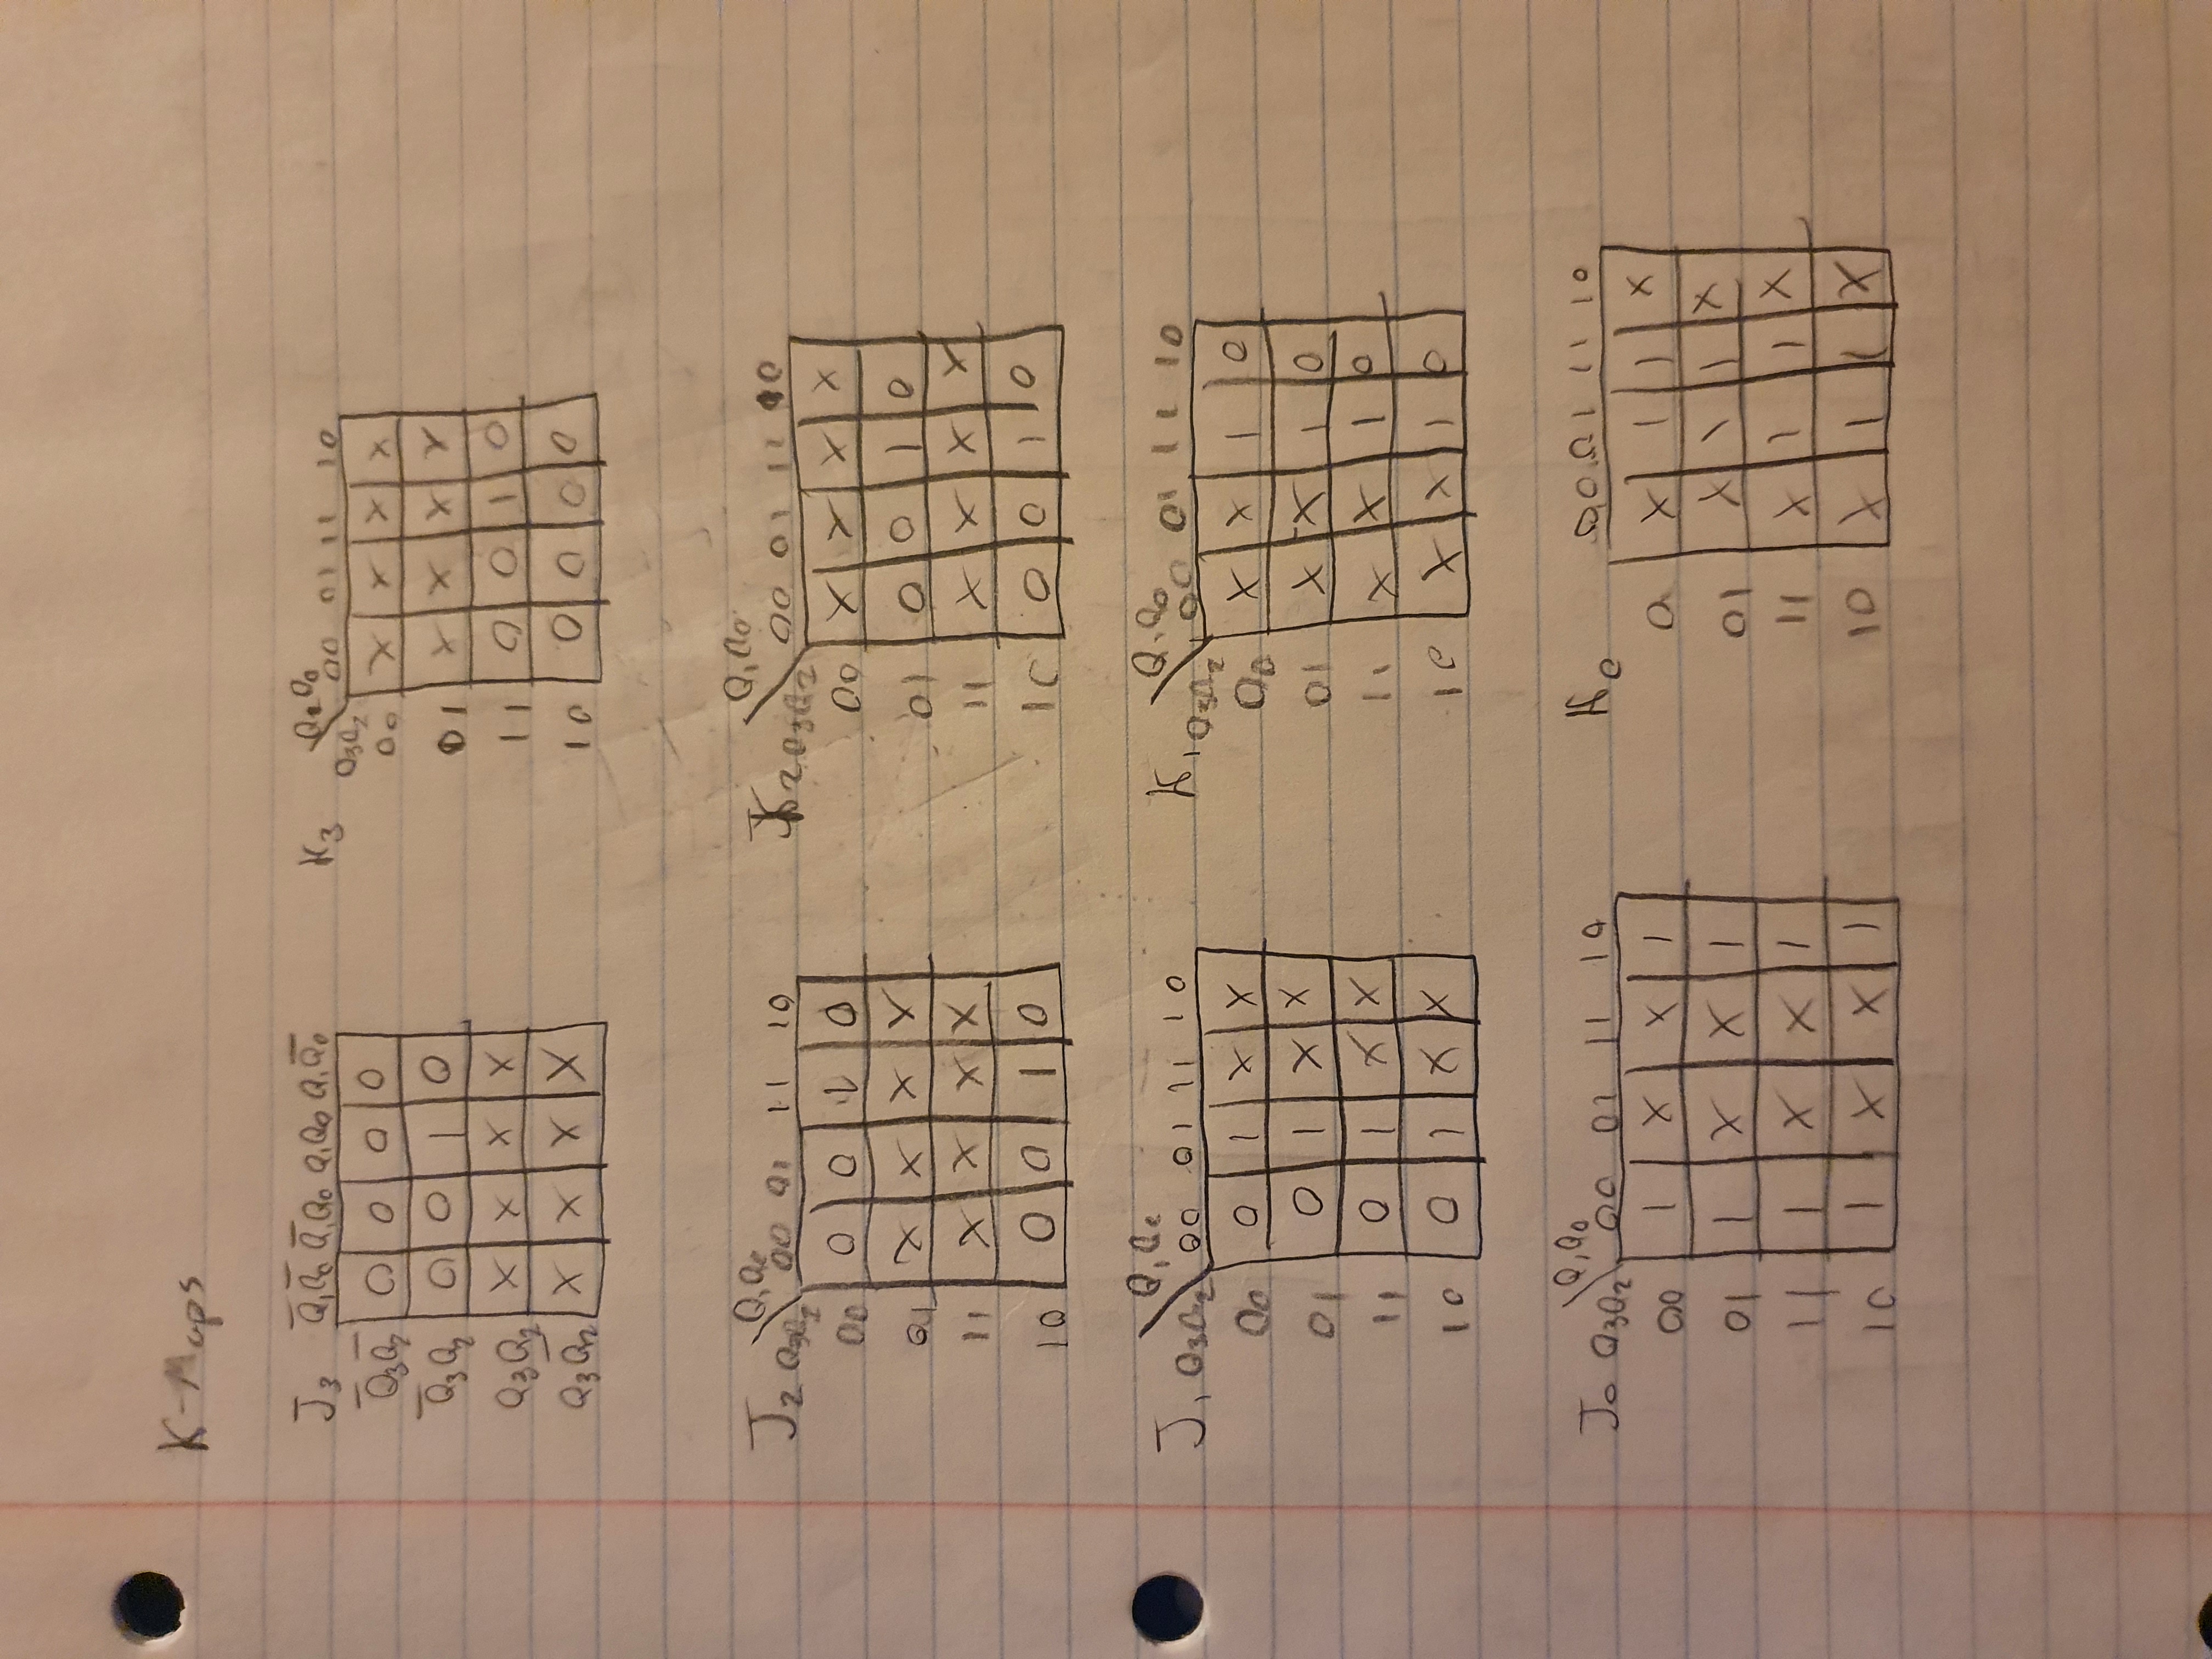 K-Maps
J3 Q̅1Q̅0 Q̅1Q0 Q1Q0 Q1Q̅0
Q̅3Q̅2 0 0 0 0
Q̅3Q2 0 0 1 0
Q3Q2 X X X X
Q3Q̅2 X X X X
K3 Q1Q0
Q3Q2 00 01 11 10
00 X X X X
01 X X X X
11 0 0 1 0
10 0 0 0 0
J2 Q1Q0
Q3Q2 00 01 11 10
00 0 0 1 0
01 X X X X
11 X X X X
10 0 0 1 0
K2 Q1Q0
Q3Q2 00 01 11 10
00 X X X X
01 0 0 1 0
11 X X X X
10 0 0 1 0
J1 Q1Q0
Q3Q2 00 01 11 10
00 0 1 X X
01 0 1 X X
11 0 1 X X
10 0 1 X X
K1 Q1Q0
Q3Q2 00 01 11 10
00 X X 1 0
01 X X 1 0
11 X X 1 0
10 X X 1 0
J0 Q1Q0
Q3Q2 00 01 11 10
00 1 X X 1
01 1 X X 1
11 1 X X 1
10 1 X X 1
K0 00 01 11 10
0 X 1 1 X
01 X 1 1 X
11 X 1 1 X
10 X 1 1 X